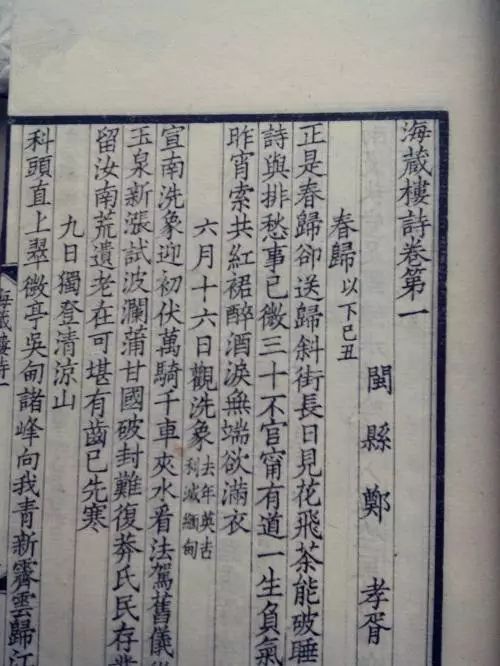 海藏樓詩卷第一
閩縣鄭孝胥
春歸 以下己丑
正是春歸卻送歸斜街長日見花飛茶能破睡
詩與排愁事已微三十不官甯有道一生負氣
昨宵索共紅裙醉酒淚無端欲滿衣
六月十六日觀洗象 去年英吉利滅緬甸
宣南洗象迎初伏萬騎千車夾水看法駕舊儀
玉泉新漲試波瀾蒲甘國破封難復莽氏民存
留汝南荒遺老在可堪有齒已先寒
九日獨登清涼山
科頭直上翠微亭吳甸諸峰向我青新霽雲歸江
海藏樓詩一